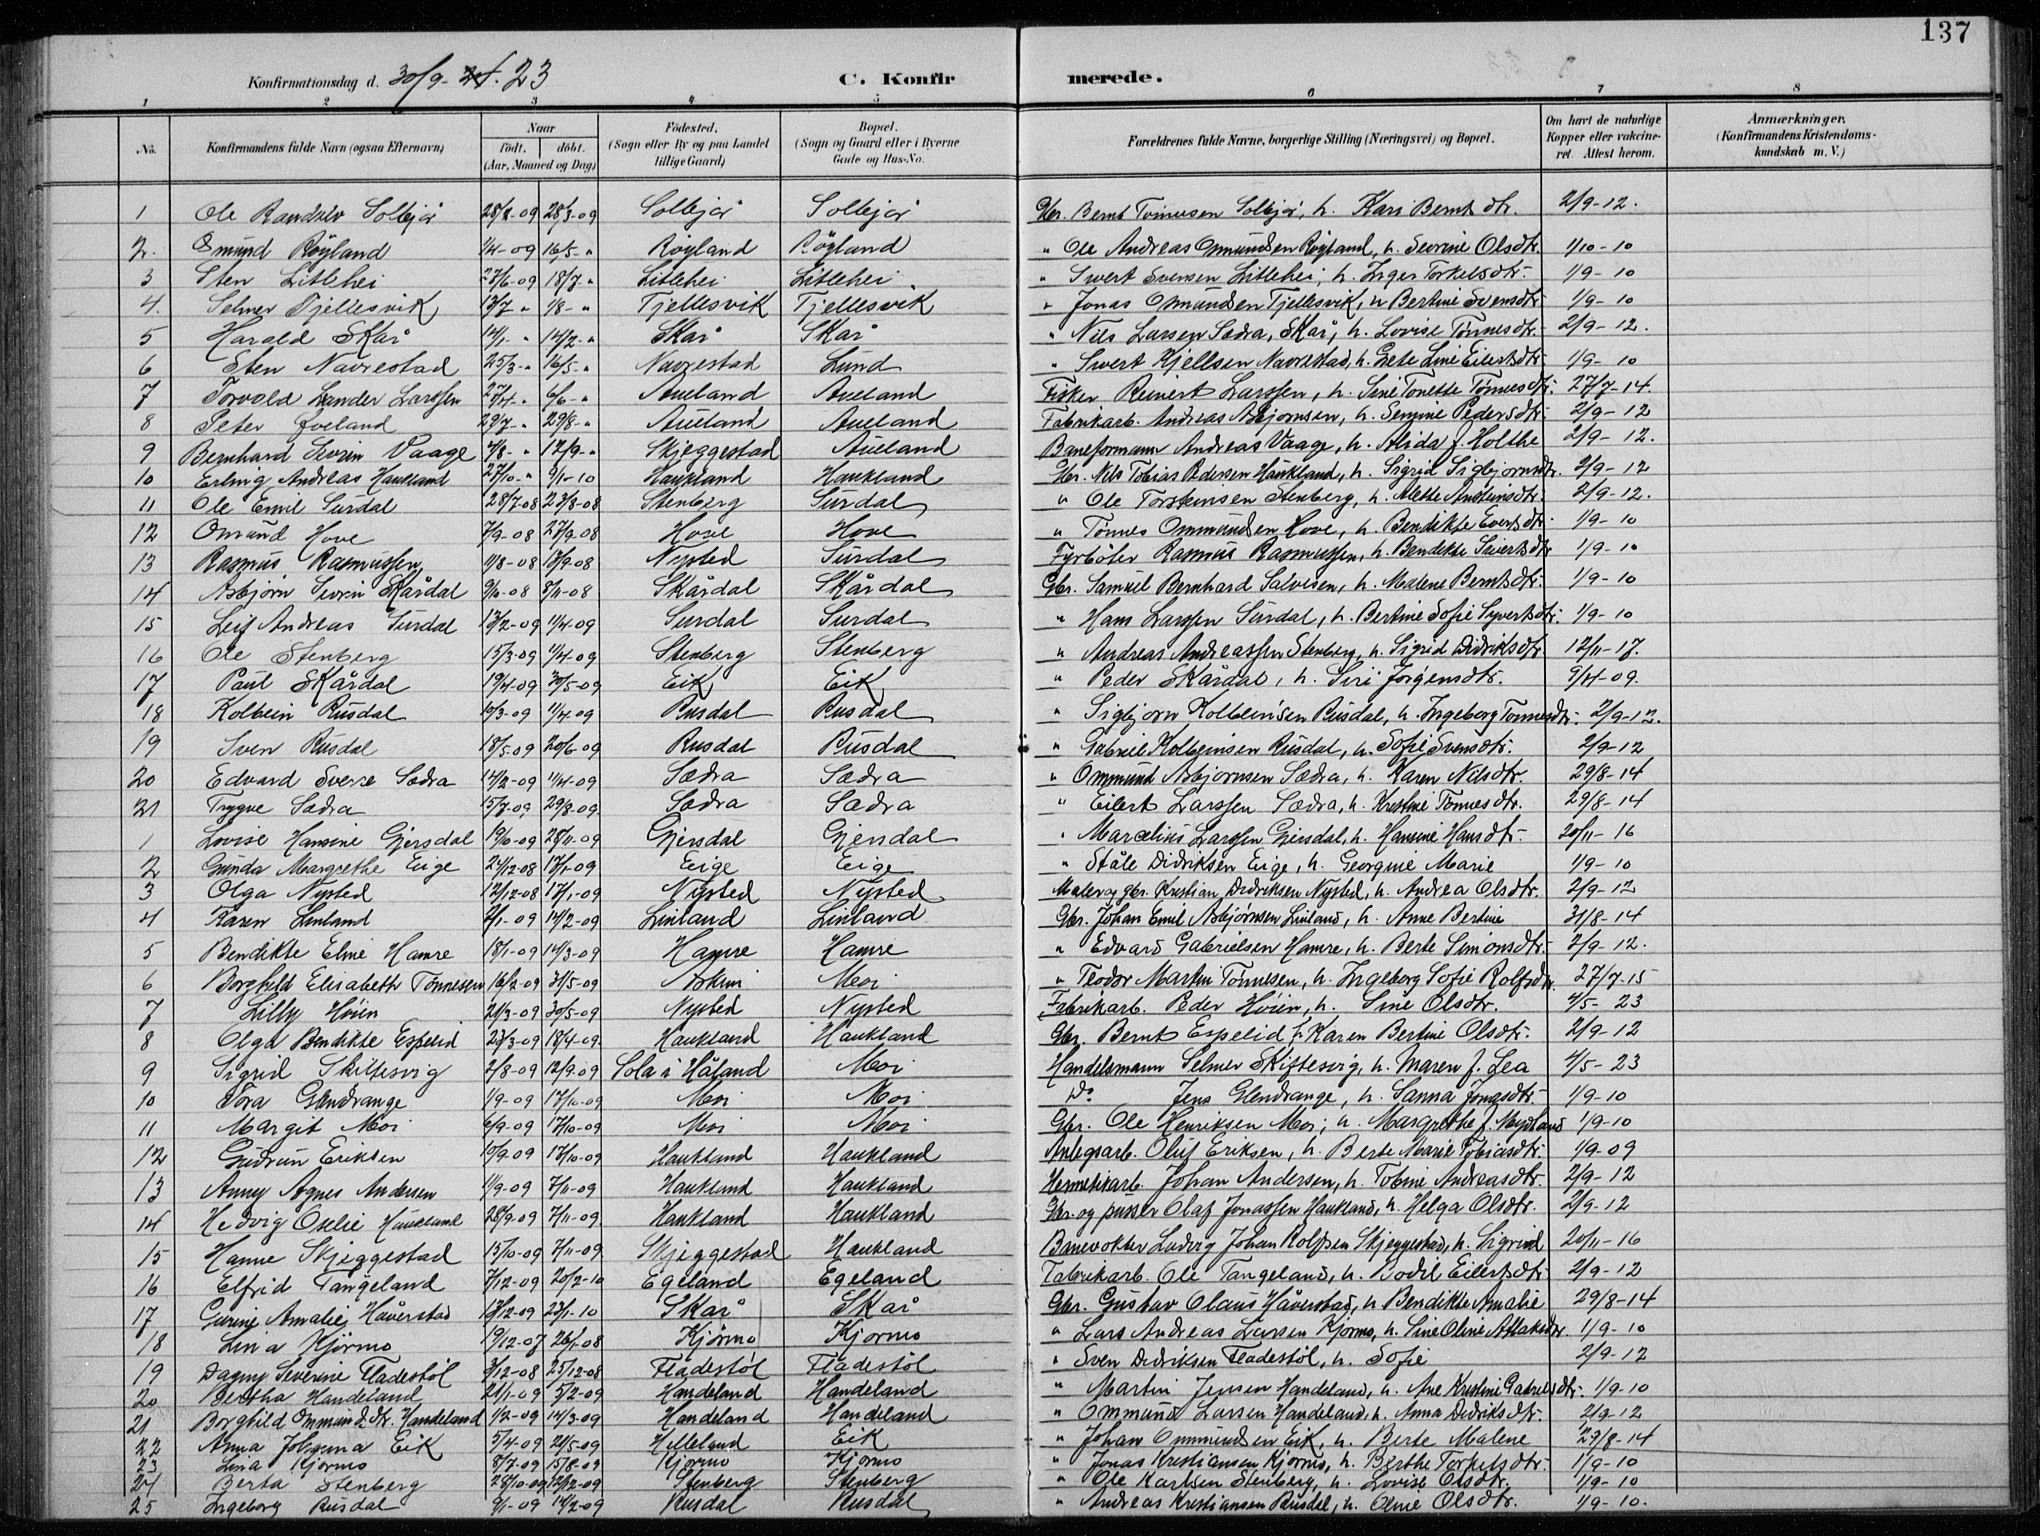 137
Konfirmationsdag d. 30/9- 23
C. Konfirmerede.
1 2 3 4 5 6 7 8
No. Konfirmandens fulde Navn (ogsaa Efternavn) Naar født. døbt. (Aar, Maaned og Dag) Fødested. (Sogn eller By og paa Landet tillige Gaard) Bopæl. (Sogn og Gaard eller i Byerne Gade og Hus-No. Forældrenes fulde Navne, borgerlige Stilling (Næringsvei) og Bopæl. Om havt de naturlige Kopper eller vakcineret Attest herom. Anmærkninger. (Konfirmandens Kristendomskundskab m. V.)
1 Ole Randulv Solbjør 28/3-09 Solbjør Solbjør Gbr. Bernt Tønnesen Solbjør, h. Kari Berntsdtr. 2/9-12.
2. Omund Røyland 1/4-09 16/5- " Røyland Røyland " Ole Andreas Omundsen Røyland, h. Sevrine Olsdtr. 1/10-10
3 Sten Litlehei 27/6-09 18/7- " Litlehei Litlehei " Sivert Svensen Litlehei, h. Inger Torkelsdtr. 1/9-10
4. Selmer Tjellesvik 13/7 " 1/8- " Tjellesvik Tjellesvik " Jonas Omundsen Tjellesvik, h. Bertine Svensdtr. 1/9-10
5 Harald Skår 14/1- " 14/2- " Skår Skår " Nils Larsen Sædra, Skår, h. Lovise Tønnesdtr. 2/9-12.
6 Sten Navrestad 25/3- " 16/5- " Navrestad Lund " Sivert Kjellsen Navrestad, h. Grete Line Eilertsdtr. 1/9-10
7 Torvald Lander Larssen 27/4- " 6/6- " Aueland Aueland Fisker Reinert Larssen, h. Sine Tonette Tønnesdtr. 27/7-14.
8 Peter Eveland 29/7- " 29/8- " Aueland Aueland Fabrikarb. Andreas Asbjørnsen, h. Serine Pedersdtr. 2/9-12
9 Bernhard Sivrin Vaage 4/8- " 12/9- " Skjeggestad Aueland Baneformann Andreas Vaage, h. Alida f. Holthe 2/9-12.
10 Erling Andreas Haukland 27/10- " 9/1-10 Haukland Haukland Gbr. Nils Tobias Pedersen Haukland, h. Sigrid Sigbjørnsdtr. 2/9-12
11 Ole Emil Surdal 28/7-08 23/8-08 Stenberg Surdal " Ole Torsteinsen Stenberg, h. Mette Austeinsdtr. 2/9-12.
12 Omund Hove 7/9-08 27/9-08 Hove Hove " Tønnes Ommundsen Hove, h. Bendikte Evertsdtr. 1/9-10
13 Rasmus Rasmussen 11/8-08 13/9-08 Nysted Surdal Fyrbøter Rasmus Rasmussen, h. Bendikte Sivertsdtr 1/9-10
14 Asbjørn Sivrin Skårdal 9/10-08 8/11-08 Skårdal Skårdal Gbr. Samuel Bernhard Salvesen, h. Malene Berntsdtr. 1/9-10
15 Leif Andreas Surdal 13/2-09 11/4-09 Surdal Surdal " Hans Larssen Surdal, h. Bertine Sofie Syvertsdtr. 1/9-10
16 Ole Stenberg 15/3-09 11/4-09 Stenberg Stenberg " Andreas Andreassen Stenberg, h. Sigrid Didriksdtr. 12/11-17.
17 Paul Skårdal 19/4-09 30/5-09 Eik Eik " Peder Skårdal, h. Siri Jørgensdtr. 9/4-09.
18 Kolbein Rusdal 10/3-09 11/4-09 Rusdal Rusdal " Sigbjørn Kolbeinsen Rusdal, h. Ingeborg Tønnesdtr. 2/9-12.
19 Sven Rusdal 18/5-09 20/6-09 Rusdal Rusdal " Gabriel Kolbeinsen Rusdal, h. Sofie Svensdtr. 2/9-12
20 Edvard Sverre Sædra 14/2-09 11/4-09 Sædra Sædra " Ommund Asbjørnsen Sædra, h. Karen Nilsdtr. 29/8-14
21 Trygve Sædra 15/7-09 29/8-09 Sædra Sædra " Eilert Larssen Sædra, h. Kristine Tønnesdtr. 29/8-14
1 Lovise Hansine Gjersdal 19/10-09 28/11-09 Gjersdal Gjersdal " Marcelius Larssen Gjersdal, h. Hansine Hansdtr. 20/11-16
2 Gunda Margrethe Eige 24/12-08 17/1-09 Eige Eige " Ståle Didriksen Eige, h. Georgine Marie 1/9-10
3 Olga Nysted 12/12-08 17/1-09 Nysted Nysted Maler og gbr. Kristian Didriksen Nysted, h. Andrea Olsdtr. 2/9-12
4 Karen Linland 2/1-09 14/2-09 Linland Linland Gbr. Johan Emil Asbjørnsen Linland, h. Anne Bertine 31/8-14
5 Bendikte Eline Hamre 18/1-09 14/3-09 Hamre Hamre " Edvard Gabrielsen Hamre, h. Berte Simonsdtr. 2/9-12.
6 Borghild Elisabeth Tønnesen 16/2-09 31/5-09 Askim Moi " Teodor Martin Tønnesen, h. Ingeborg Sofie Rolfsdtr. 27/7-15
7 Lilly Høien 21/3-09 30/5-09 Nysted Nysted Fabrikarb. Peder Høien, h. Sine Olsdtr. 4/5-23
8 Olga Bendikte Espelid 23/3-09 18/4-09 Haukland Haukland Gbr. Bernt Espelid h. Karen Bertine Olsdtr. 2/9-12
9 Sigrid Skiftesvig 2/8-09 12/9-09 Sola i Håland Moi Handelsmann Selmer Skiftesvig, h. Maren f. Lea 4/5-23
10 Tora Glendrange 1/9-09 17/10-09 Moi Moi Do Jens Glendrange, h. Sanna Jonasdtr. 1/9-10
11 Margit Moi 6/9-09 17/10-09 Moi Moi Gbr. Ole Henriksen Moi, h. Margrethe f. Mydland 1/9-10
12 Gudrun Eriksen 10/9-09 17/10-09 Haukland Haukland Anlegsarb. Oluf Eriksen, h. Berte Marie Tobiasdtr. 1/9-09
13 Anny Agnes Andersen 1/9-09 7/11-09 Haukland Haukland Hermetikarb. Johan Andersen, h. Tobine Andreasdtr. 2/9-12
14 Hedvig Oselie Haukland 28/9-09 7/11-09 Haukland Haukland Gbr. og pusser Olaf Jonassen Haukland, h. Helga Olsdtr. 2/9-12
15 Hanne Skjeggestad 15/10-09 7/11-09 Skjeggestad Haukland Banevokter Ludvig Johan Rolfsen Skjeggestad, h. Sigrid 20/11-16
16 Elfrid Tangeland 7/12-09 20/2-10 Egeland Egeland Fabrikarb. Ole Tangeland, h. Bodil Eilertsdtr 2/9-12
17 Gurine Amalie Håverstad 13/12-09 23/1-10 Skår Skår Gbr. Gustav Olaus Håverstad, h. Bendikte Amalie 29/8-14
18 Lina Kjørmo 19/12-07 26/1-08 Kjørmo Kjørmo " Lars Andreas Larsen Kjørmo, h. Sine Oline Aslaksdtr 1/9-10
19 Dagny Severine Fladestøl 3/12-08 25/12-08 Fladestøl Fladestøl " Sven Didriksen Fladestøl, h. Sofie 2/9-12
20 Bertha Handeland 21/1-09 5/2-09 Handeland Handeland " Martin Jensen Handeland, h. Ane Kristine Gabrielsdtr. 1/9-10
21 Borghild Ommundsdtr. Handeland 1/2-09 14/3-09 Handeland Handeland " Ommund Larsen Handeland, h. Anna Didriksdtr. 2/9-12
22 Anna Johanna Eik 5/4-09 21/5-09 Helleland Eik " Johan Ommundsen Eik, h. Berte Malene 29/8-14
23 Lina Kjørmo 8/7-09 15/8-09 Kjørmo Kjørmo " Jonas Kristiansen Kjørmo, h. Berthe Torkelsdtr. 1/9-10
24 Berta Stenberg 28/10-09 12/12-09 Stenberg Stenberg " Ole Karlsen Stenberg, h. Lovise Olsdtr. 1/9-10
25 Ingeborg Rusdal 9/1-09 14/2-09 Rusdal Rusdal " Andreas Kristiansen Rusdal, h. Oline Olsdtr. 1/9-10.